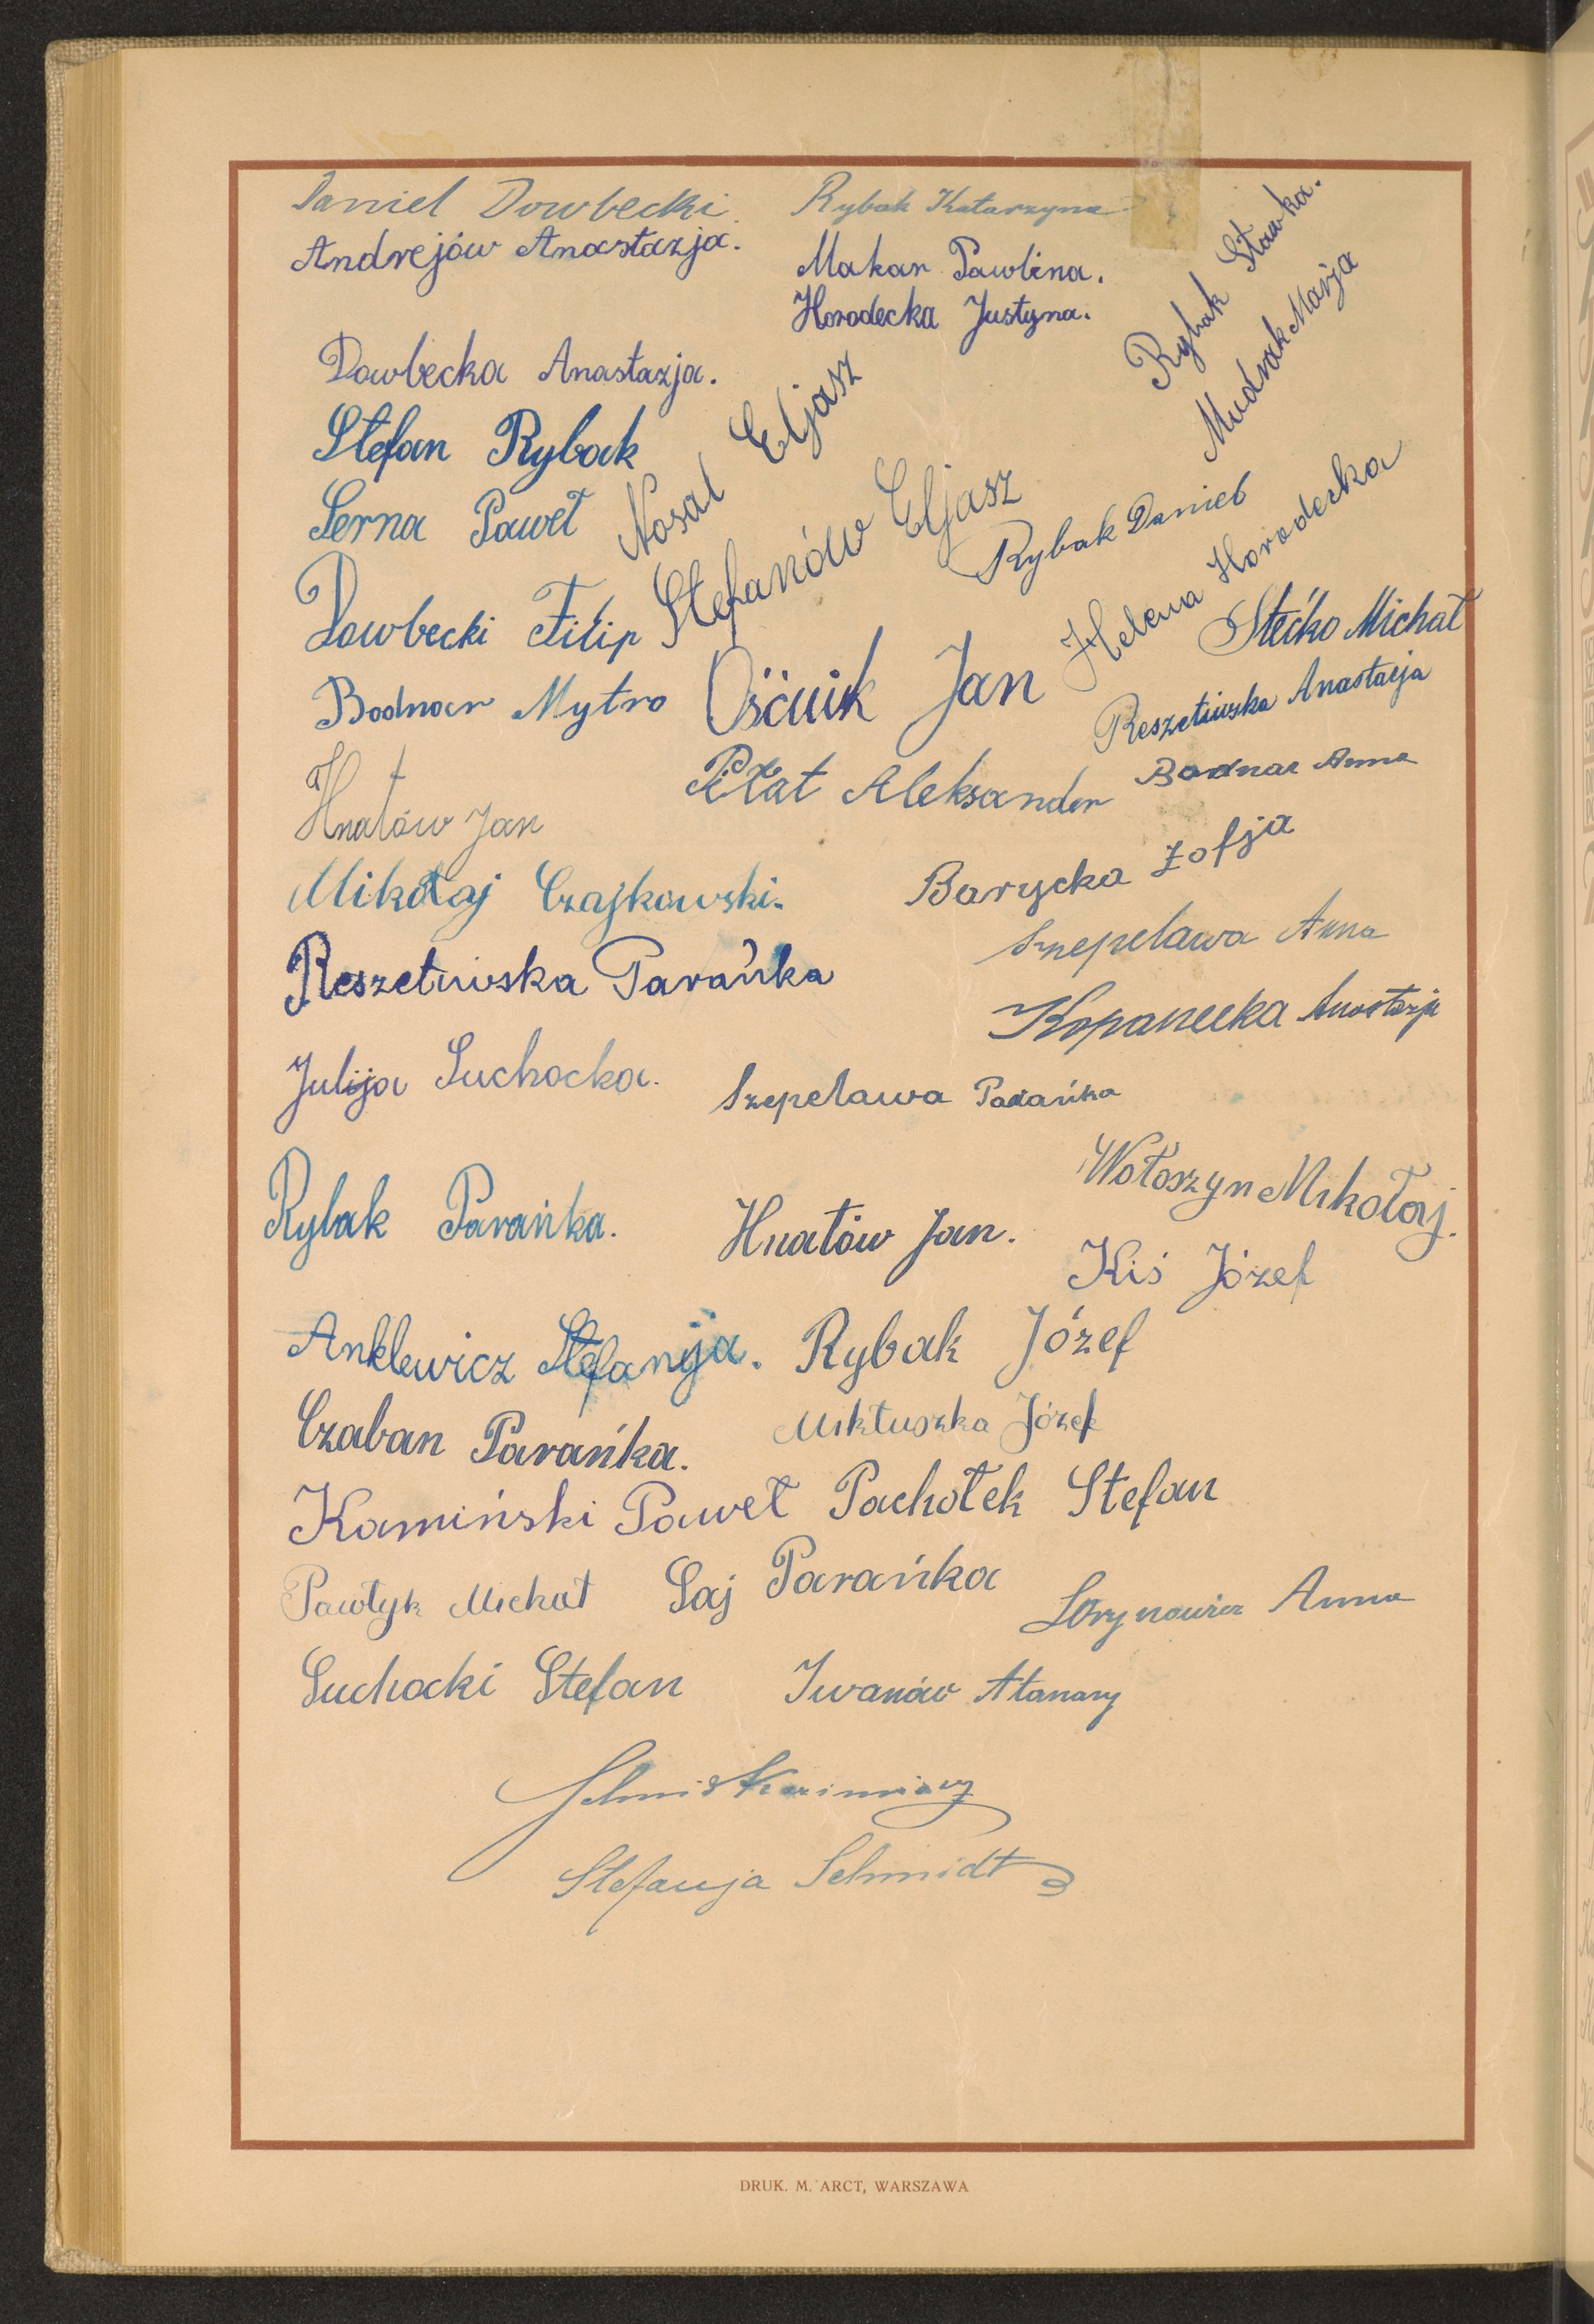 Daniel Dowbecki
Rybak Katarzyna
Andrejów Anastazja.
Makar Pawlina.
Horodecka Justyna.
Rybak Sławka.
Mudrak Marja
Dowbecka Anastazja.
Stefan Rybak
Nosal Eljasz
Serna Paweł
Stefanów Eljasz
Rybak Daniel
Helena Horodecka
Dowbecki Filip
Stećko Michał
Bodnar Mytro
Ośćuik Jan
Reszetiwska Anastazja
Hnatów Jan
Aleksander
Bodnar Anna
Mikołaj Czajkowski.
Barycka Zofja
Reszetiwska Parańka
Szepelawa Anna
Kopanecka Anastazja
Julija Suchocka.
Szepelawa Parańka
Rybak Parańka.
Hnatów Jan.
Wołoszyn Mikołaj.
Kiś Józef
Anklewicz Stefanija.
Rybak Józef
Czaban Parańka.
Miktuszka Józef
Kamiński Paweł
Pachołek Stefan
Pawłyk Michał
Saj Parańka
Anna
Suchocki Stefan
Iwanów Atanazy
Schmid Kazimierz
Stefanja Schmidt
DRUK. M. ARCT, WARSZAWA